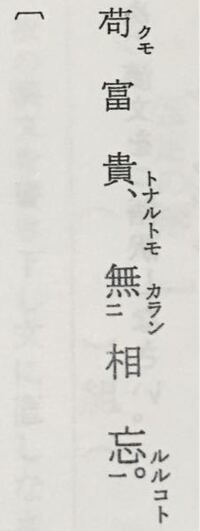 苟クモ富貴トナルトモ、無カラン二相忘ルルコト一。
〔